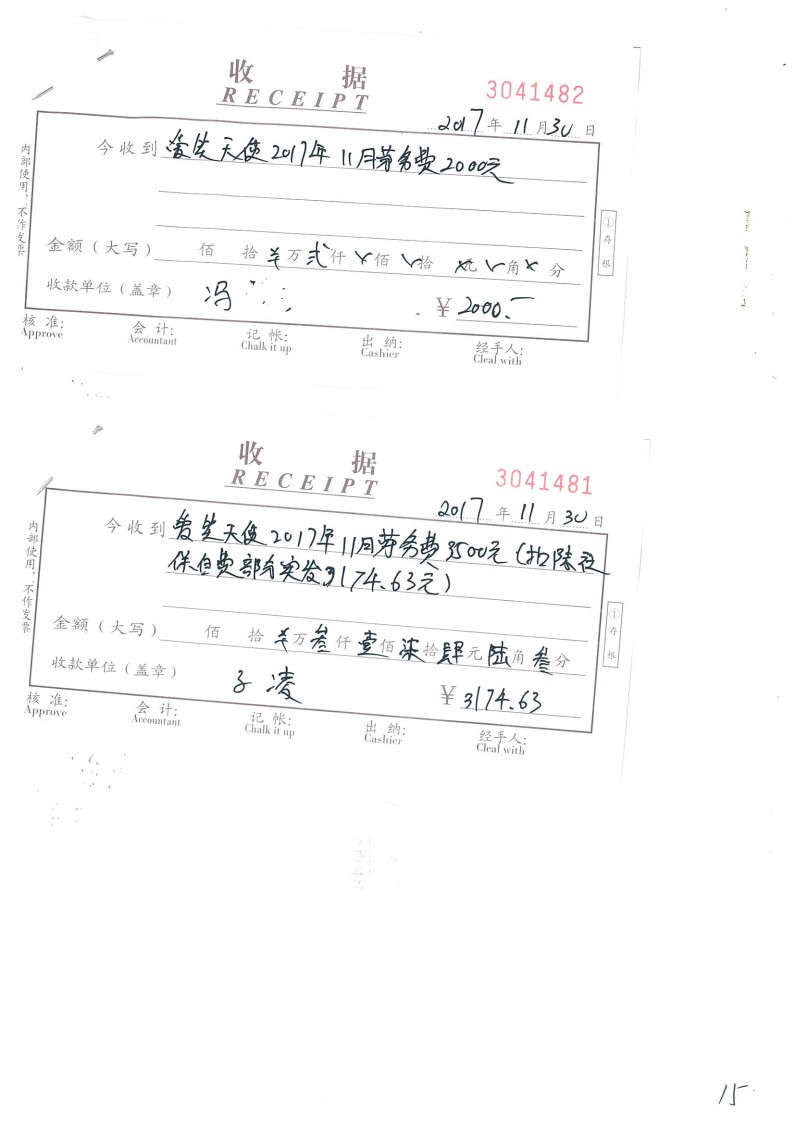 收 据
RECEIPT
3041482
2017年11月30日
今收到 爱笑天使2017年11月劳务费2000元
金额（大写） 佰 拾 ¥万 贰仟 ×佰 ×拾 ×元 ×角 × 分
收款单位（盖章） 冯 ¥ 2000.-
核 准: 会 计: 记 帐: 出 纳: 经手人:
Approve Accountant Chalk it up Cashier Cleal with
内部使用，不作发票
①存根
收 据
RECEIPT
3041481
2017年11月30日
今收到 爱笑天使2017年11月劳务费3500元(扣除设
保自费部分实发3174.63元)
金额（大写） 佰 拾 ¥万 叁仟 壹佰 柒拾 肆元 陆角 叁分
收款单位（盖章） 凌 ¥ 3174.63
核 准: 会 计: 记 帐: 出 纳: 经手人:
Approve Accountant Chalk it up Cashier Cleal with
内部使用，不作发票
①存根
15